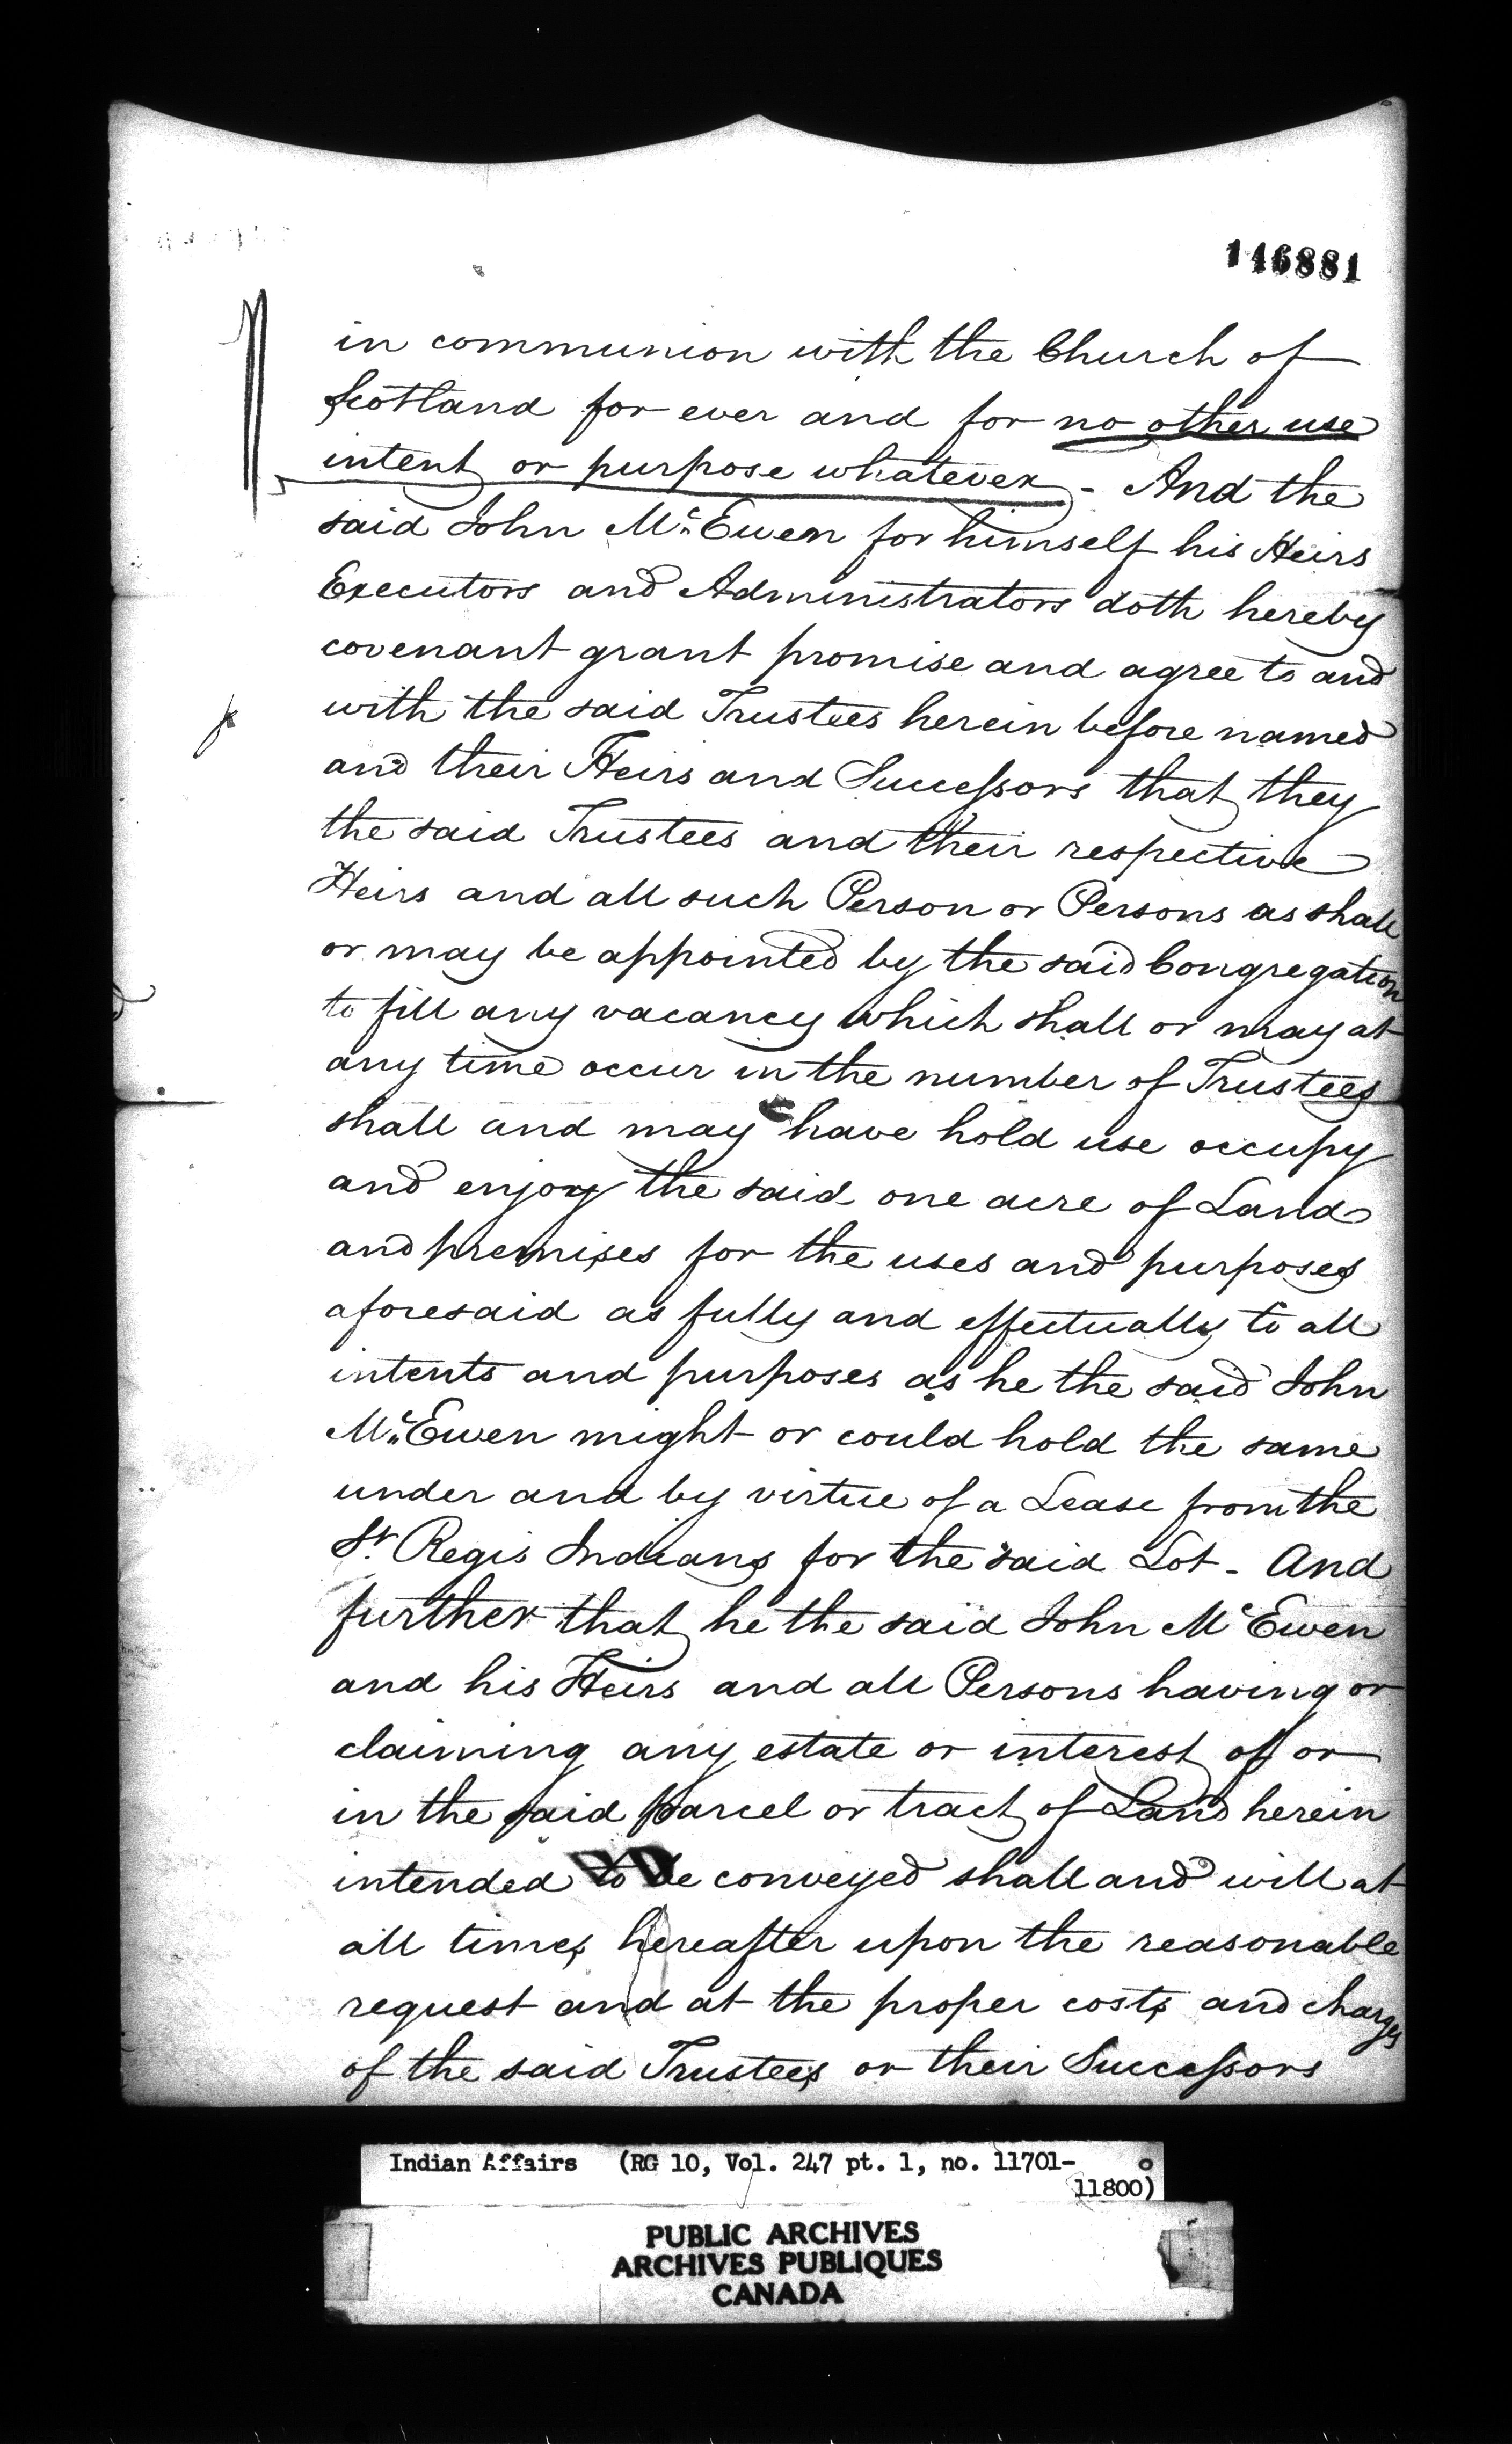 146881
in communion with the Church of
Scotland for ever and for no other use
intent or purpose whatever - And the
said John Mc Ewen for himself his Heirs
Executors and Administrators doth hereby
covenant grant promise and agree to and
with the said Trustees herein before named
and their Heirs and Successors that they
the said Trustees and their respective
Heirs and all such Person or Persons as shall
or may be appointed by the said Congregation
to fill any vacancy which shall or may at
any time occur in the number of Trustees
shall and may have hold use occupy
and enjoy the said one acre of Land
and premises for the uses and purposes
aforesaid as fully and effectually to all
intents and purposes as he the said John
Mc Ewen might or could hold the same
under and by virtue of a Lease from the
St. Regis Indians for the said Lot - And
further that he the said John Mc Ewen
and his Heirs and all Persons having or
claiming any estate or interest of or
in the said parcel or tract of Land herein
intended to be conveyed shall and will at
all times hereafter upon the reasonable
request and at the proper costs and charges
of the said Trustees or their Successors
Indian Affairs (RG 10, Vol. 247 pt. 1, no. 11701-
11800)
PUBLIC ARCHIVES
ARCHIVES PUBLIQUES
CANADA